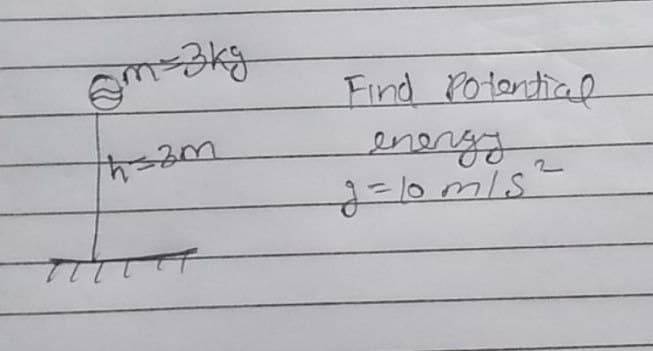 m=3kg
h=3m
Find Potential
energy
g=10 m/s²